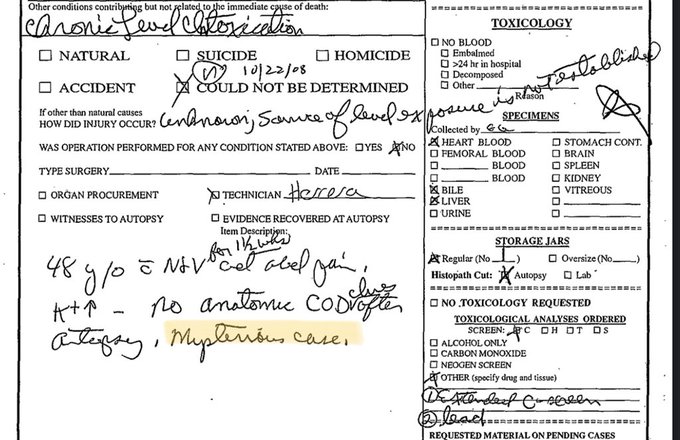 Other conditions contributing but not related to the immediate cause of death:
Chronic Level Intoxication
☐ NATURAL ☐ SUICIDE ☐ HOMICIDE
10/22/08
☐ ACCIDENT ☒ COULD NOT BE DETERMINED
If other than natural causes
HOW DID INJURY OCCUR? unknown; source of level exposure is not established
WAS OPERATION PERFORMED FOR ANY CONDITION STATED ABOVE: ☐YES ☒NO
TYPE SURGERY DATE
☐ ORGAN PROCUREMENT ☒ TECHNICIAN Herrera
☐ WITNESSES TO AUTOPSY ☐ EVIDENCE RECOVERED AT AUTOPSY
Item Description:
for 1 1/2 wks
48 y/o c̄ N+V and abd pain,
K+↑ - no anatomic COD clues after
autopsy. Mysterious case.
TOXICOLOGY
☐ NO BLOOD
☐ Embalmed
☐ >24 hr in hospital
☐ Decomposed
☐ Other
Reason
SPECIMENS
Collected by EG
☒ HEART BLOOD ☐ STOMACH CONT.
☐ FEMORAL BLOOD ☐ BRAIN
☐ BLOOD ☐ SPLEEN
☐ BLOOD ☐ KIDNEY
☒ BILE ☐ VITREOUS
☒ LIVER ☐
☐ URINE ☐
STORAGE JARS
☒ Regular (No 1) ☐ Oversize (No )
Histopath Cut: ☒ Autopsy ☐ Lab
☐ NO TOXICOLOGY REQUESTED
TOXICOLOGICAL ANALYSES ORDERED
SCREEN: ☒ C ☐ H ☐ T ☐ S
☐ ALCOHOL ONLY
☐ CARBON MONOXIDE
☐ NEOGEN SCREEN
☒ OTHER (specify drug and tissue)
① Extended C-screen
② lead
REQUESTED MATERIAL ON PENDING CASES